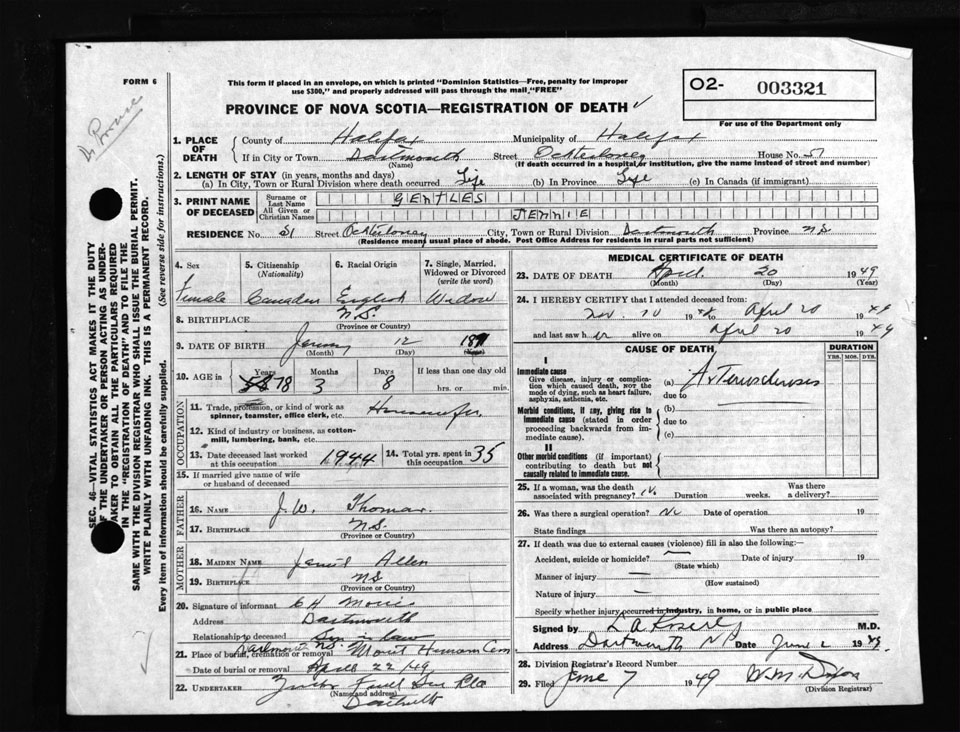 FORM 6
This form if placed in an envelope, on which is printed "Dominion Statistics—Free, penalty for improper
use $300," and properly addressed will pass through the mail, "FREE"
O2- 003321
PROVINCE OF NOVA SCOTIA—REGISTRATION OF DEATH
For use of the Department only
1. PLACE OF DEATH County of Halifax Municipality of Halifax
If in City or Town Dartmouth Street Ochterloney House No. 57
(Name) (If death occurred in a hospital or institution, give the name instead of street and number)
2. LENGTH OF STAY (in years, months and days)
(a) In City, Town or Rural Division where death occurred Life (b) In Province Life (c) In Canada (if immigrant)
3. PRINT NAME OF DECEASED Surname or Last Name GENTLES
All Given or Christian Names JENNIE
RESIDENCE No. 51 Ochterloney City, Town or Rural Division Dartmouth Province N.S.
(Residence means usual place of abode. Post Office Address for residents in rural parts not sufficient)
4. Sex Female
5. Citizenship (Nationality) Canadian
6. Racial Origin English
7. Single, Married, Widowed or Divorced (write the word) Widow
8. BIRTHPLACE N.S.
(Province or Country)
9. DATE OF BIRTH January 12
(Month) (Day) (Year)
10. AGE in Years 78 Months 3 Days 8 If less than one day old
hrs. or min.
OCCUPATION
11. Trade, profession, or kind of work as spinner, teamster, office clerk, etc. Housewife
12. Kind of industry or business, as cotton-mill, lumbering, bank, etc.
13. Date deceased last worked at this occupation 1944 14. Total yrs. spent in this occupation 35
15. If married give name of wife or husband of deceased
FATHER
16. NAME J.W. Thomas
17. BIRTHPLACE N.S.
(Province or Country)
MOTHER
18. MAIDEN NAME Allen
19. BIRTHPLACE N.S.
(Province or Country)
20. Signature of informant C H
Address Dartmouth
Relationship to deceased Son in law
21. Place of burial, cremation or removal Dartmouth N.S. Mount Hermon Cem
Date of burial or removal April 22 49
22. UNDERTAKER
(Name and address)
Dartmouth
MEDICAL CERTIFICATE OF DEATH
23. DATE OF DEATH April 20 1949
(Month) (Day) (Year)
24. I HEREBY CERTIFY that I attended deceased from:
Nov. 10 1948 to April 20 1949
and last saw her alive on April 20 1949
CAUSE OF DEATH DURATION
YRS. MOS. DYS.
I
Immediate cause
Give disease, injury or complication which caused death, NOT the mode of dying, such as heart failure, asphyxia, asthenia, etc.
(a) Arteriosclerosis
due to
Morbid conditions, if any, giving rise to immediate cause (stated in order proceeding backwards from immediate cause).
(b)
due to
(c)
II
Other morbid conditions (if important) contributing to death but not causally related to immediate cause.
25. If a woman, was the death associated with pregnancy? No Duration weeks. Was there a delivery?
26. Was there a surgical operation? No Date of operation 19
State findings Was there an autopsy?
27. If death was due to external causes (violence) fill in also the following:—
Accident, suicide or homicide? Date of injury 19
(State which)
Manner of injury —
(How sustained)
Nature of injury —
Specify whether injury occurred in industry, in home, or in public place
Signed by M.D.
Address Dartmouth Date June 1949
28. Division Registrar's Record Number
29. Filed June 7 1949
(Division Registrar)
SEC. 46—VITAL STATISTICS ACT MAKES IT THE DUTY
OF THE UNDERTAKER OR PERSON ACTING AS UNDER-
TAKER TO OBTAIN ALL THE PARTICULARS REQUIRED
IN THE "REGISTRATION OF DEATH" AND TO FILE THE
SAME WITH THE DIVISION REGISTRAR WHO SHALL ISSUE THE BURIAL PERMIT.
WRITE PLAINLY WITH UNFADING INK. THIS IS A PERMANENT RECORD.
Every item of information should be carefully supplied. (See reverse side for instructions.)